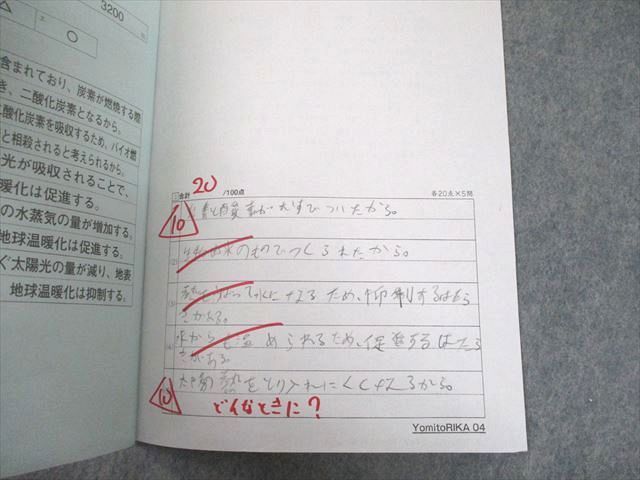 3200
△
エ
○
含まれており、炭素が燃焼する際
き、二酸化炭素となるから。
二酸化炭素を吸収するため、バイオ燃
と相殺されると考えられるから。
光が吸収されることで、
暖化は促進する。
の水蒸気の量が増加する。
地球温暖化は促進する。
ぐ太陽光の量が減り、地表
地球温暖化は抑制する。
合計 20 /100点
各20点×5問
10
むすびついたから。
のものでつくられたから。
(3)
なるため、抑制するはたら
きがある。
(4)
からも温められるため、促進するはたら
きがある。
10
太陽熱をとり入れにくくなるから。
どんなときに?
YomitoRIKA 04